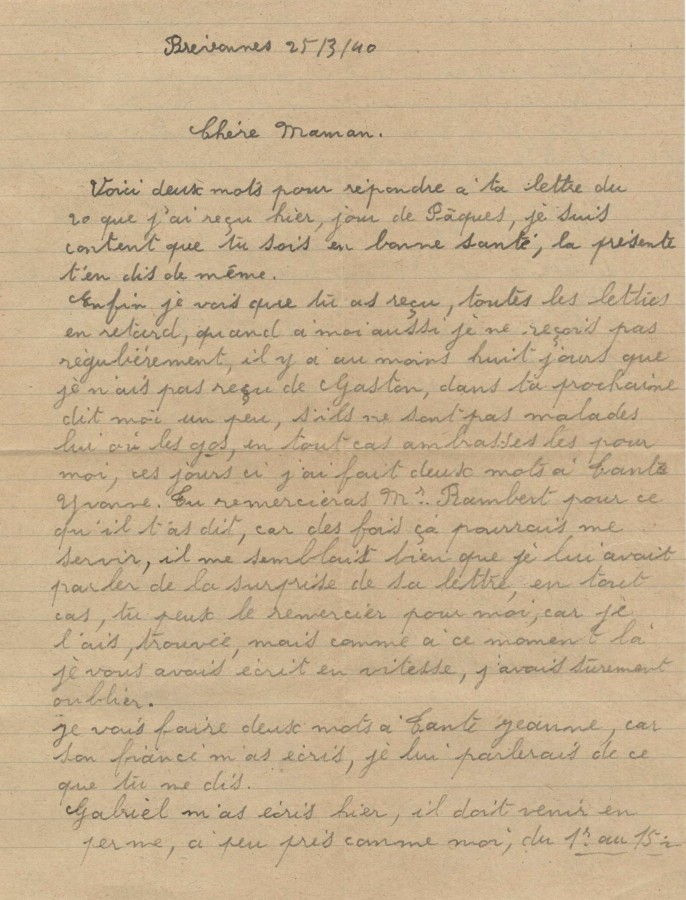 Brevonnes 25/3/40
Chére Maman.
Voici deux mots pour répondre à ta lettre du
20 que j'ai reçu hier, jour de Pâques, je suis
content que tu sois en bonne santé, la présente
t'en dis de même.
Enfin je vois que tu as reçu, toutes les lettres
en retard, quand a moi aussi je ne reçois pas
reguliérement, il y a au moins huit jours que
je n'ais pas reçu de Gaston, dans ta prochaine
dit moi un peu, s'ils ne sont pas malades
lui ou les gos, en tout cas ambrasses les pour
moi, ces jours ci j'ai fait deux mots à Tante
Yvonne. Tu remercieras Mr. Rambert pour ce
qu'il t'as dit, car des fois ça pourrais me
servir, il me semblait bien que je lui avait
parler de la surprise de sa lettre, en tout
cas, tu peux le remercier pour moi, car je
l'ais, trouvée, mais comme à ce moment là
je vous avais écrit en vitesse, j'avais sûrement
oublier.
je vais faire deux mots à Tante Jeanne, car
son fiancé m'as écris, je lui parlerais de ce
que tu me dis.
Gabriel m'as écris hier, il doit venir en
perme, a peu prés comme moi, du 1r au 15